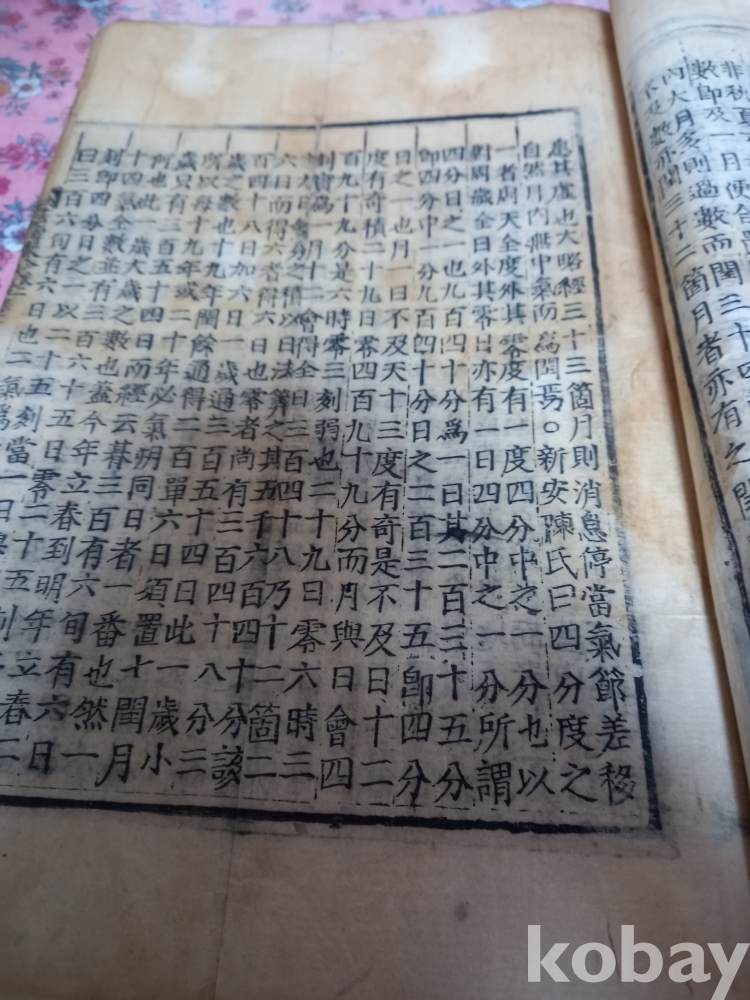 數卽及一月便合
內大月多則過數而閏三十四
不及數亦閏三十二箇月者亦有之閏
患其虛也大略經三十三箇月則消息停當氣節差移
自然月內無中氣而爲閏焉○新安陳氏曰四分度之
一者周天全度外其零度有一度四分中之一分也以
對周歲全日外其零日亦有一日四分中之一分所謂
四分日之一也九百四十分爲一日其二百三十五分
卽四分中一分九百四十分日之二百三十五卽四分
日之一也月一日不及天十三度有奇是不及日十二
度有奇積二十九日零四百九十九分而月與日會四
百九十九分是六時零三刻弱也二十九日零六時三
刻實爲一月十二會得全日三百四十八乃十二箇二
十九大日會分之積以日法筭之其五千六百四十分該
六日而得六者得六日也零者尚有三百四十八分三
百四十八日加六日一歲通三百五十四日此一歲小
歲之數也十九年閏餘通得二百單六日須置七閏月
所以每十九年或二十年必氣朔同日者一番也然一
歲只有三百五十四日而經云暮三百有六旬有六日
何也此一歲大歲之數也蓋今年立春到明年立春二
十四氣全數並有三百六十五日零二十五刻
刻卽四分日之一以二十五刻當一日
曰三百六旬有六日也二氣爲
kobay